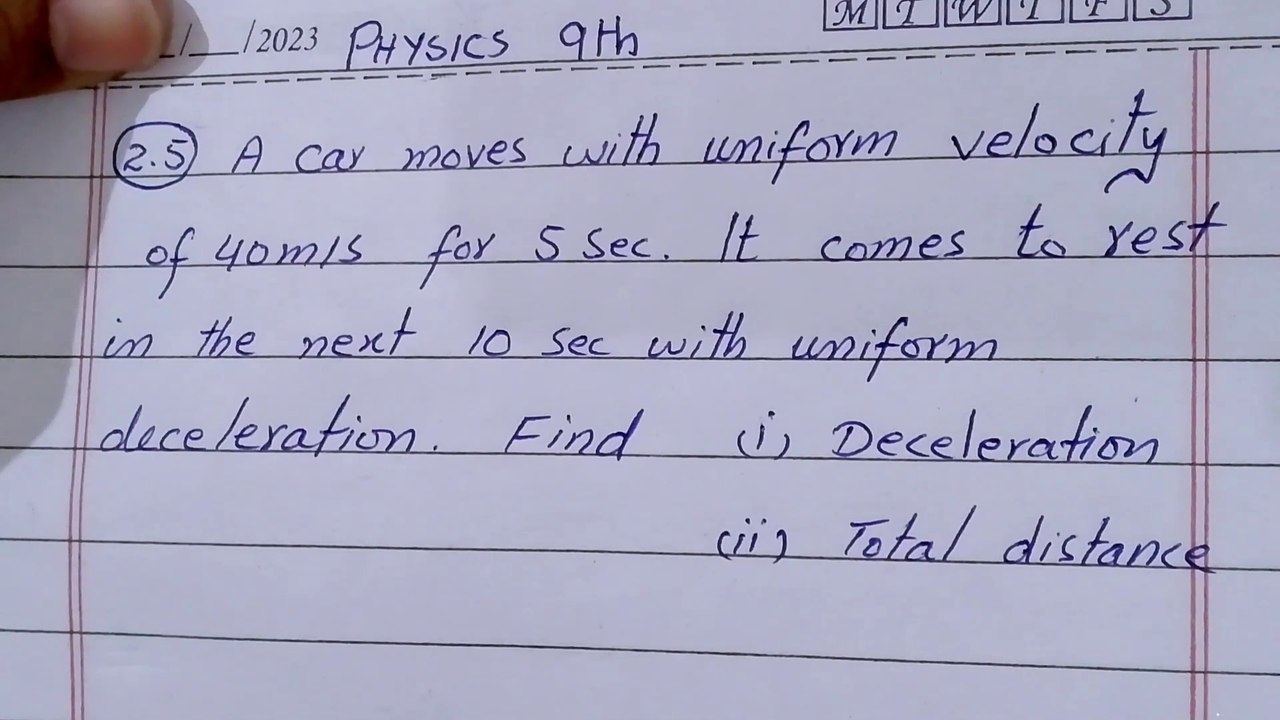 /__/2023 PHYSICS 9th
M T W T F S
2.5 A car moves with uniform velocity
of 40m/s for 5 Sec. It comes to rest
in the next 10 sec with uniform
deceleration. Find (i) Deceleration
(ii) Total distance